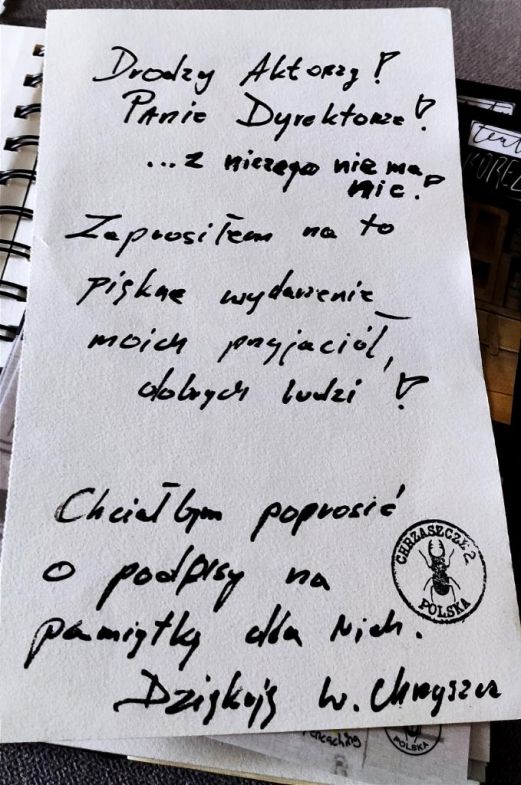 Drodzy Aktorzy!
Panie Dyrektorze!
...z niczego nie ma
nic!
Zaprosiłem na to
piękne wydarzenie
moich przyjaciół,
dobrych ludzi!
Chciałbym poprosić
o podpisy na
pamiątkę dla Nich.
Dziękuję W.
CHRZĄSZCZ
POLSKA
teat
KOREZ
POLSKA